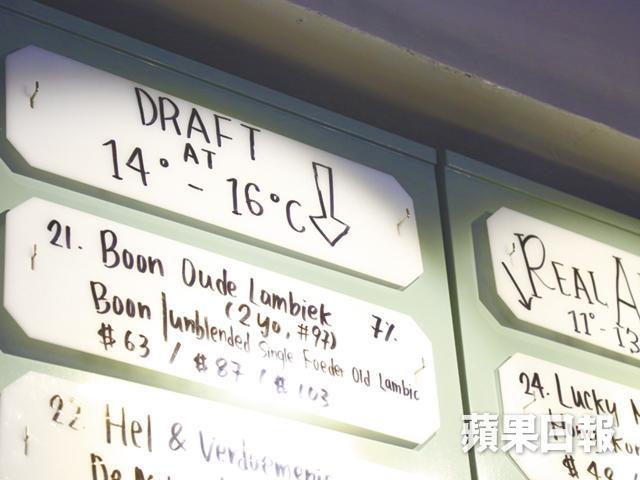 DRAFT
AT
14° - 16°C
21. Boon Oude Lambiek 7%
(2yo, #97)
Boon / unblended Single Foeder Old Lambic
$63 / $87 / $103
22. Hel & Verdoemenis
REAL
11° - 13
24. Lucky
蘋果日報